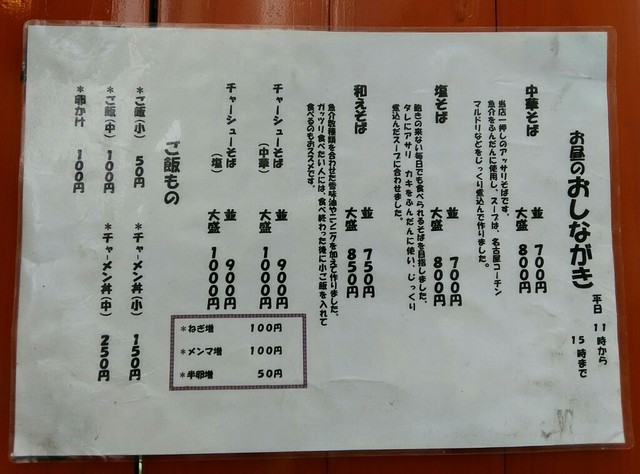 お昼のおしながき
平日 11時から
15時まで
中華そば
並 700円
大盛 800円
当店一押しのアッサリそばです。
魚介をふんだんに使用し、スープは、名古屋コーチン
マルドリなどをじっくり煮込んで作りました。
塩そば
並 700円
大盛 800円
飽きの来ない毎日でも食べられるそばを目指しました。
タレにアサリ カキをふんだんに使い、じっくり
煮込んだスープに合わせました。
和えそば
並 750円
大盛 850円
魚介数種類を合わせた香味油やニンニクを加えて作りました。
ガッツリ食べたい人には、食べ終わった後に小ご飯を入れて
食べるのもおススメです。
チャーシューそば
(中華)
並 900円
大盛 1000円
チャーシューそば
(塩)
並 900円
大盛 1000円
*ねぎ増 100円
*メンマ増 100円
*半卵増 50円
ご飯もの
*ご飯(小) 50円
*ご飯(中) 100円
*卵かけ 100円
*チャーメン丼(小) 150円
*チャーメン丼(中) 250円